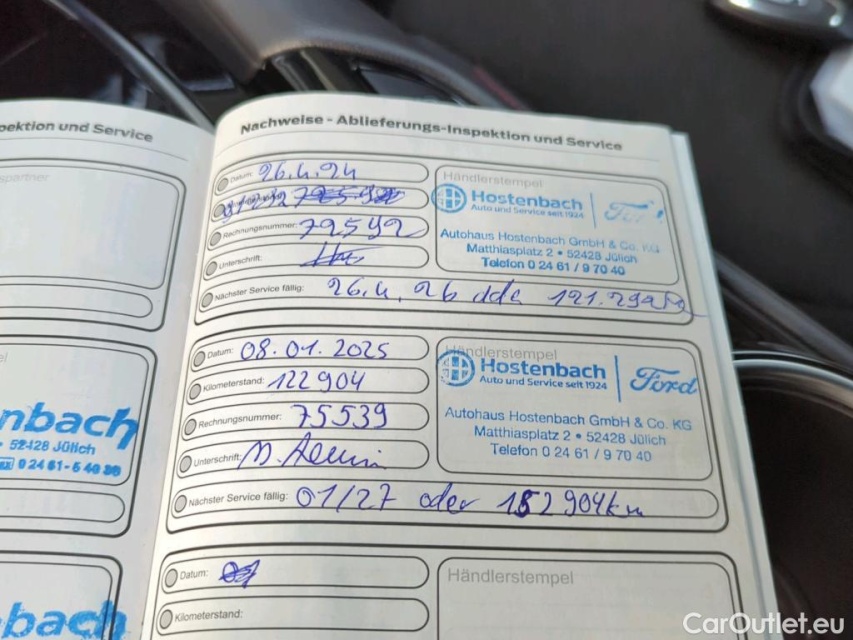 pektion und Service
spartner
nbach
• 52428 Jülich
bach
Nachweise - Ablieferungs-Inspektion und Service
Datum: 26.4.24
Rechnungsnummer:
Unterschrift:
Nächster Service fällig: 26.4.26
Händlerstempel
Hostenbach
Auto und Service seit 1924
Ford
Autohaus Hostenbach GmbH & Co. KG
Matthiasplatz 2 • 52428 Jülich
Telefon 0 24 61 / 9 70 40
Datum: 08.01.2025
Kilometerstand: 122904
Rechnungsnummer: 75539
Unterschrift:
Nächster Service fällig: 01/27 oder 152904km
Händlerstempel
Hostenbach
Auto und Service seit 1924
Ford
Autohaus Hostenbach GmbH & Co. KG
Matthiasplatz 2 • 52428 Jülich
Telefon 0 24 61 / 9 70 40
Datum:
Kilometerstand:
Händlerstempel
CarOutlet.eu